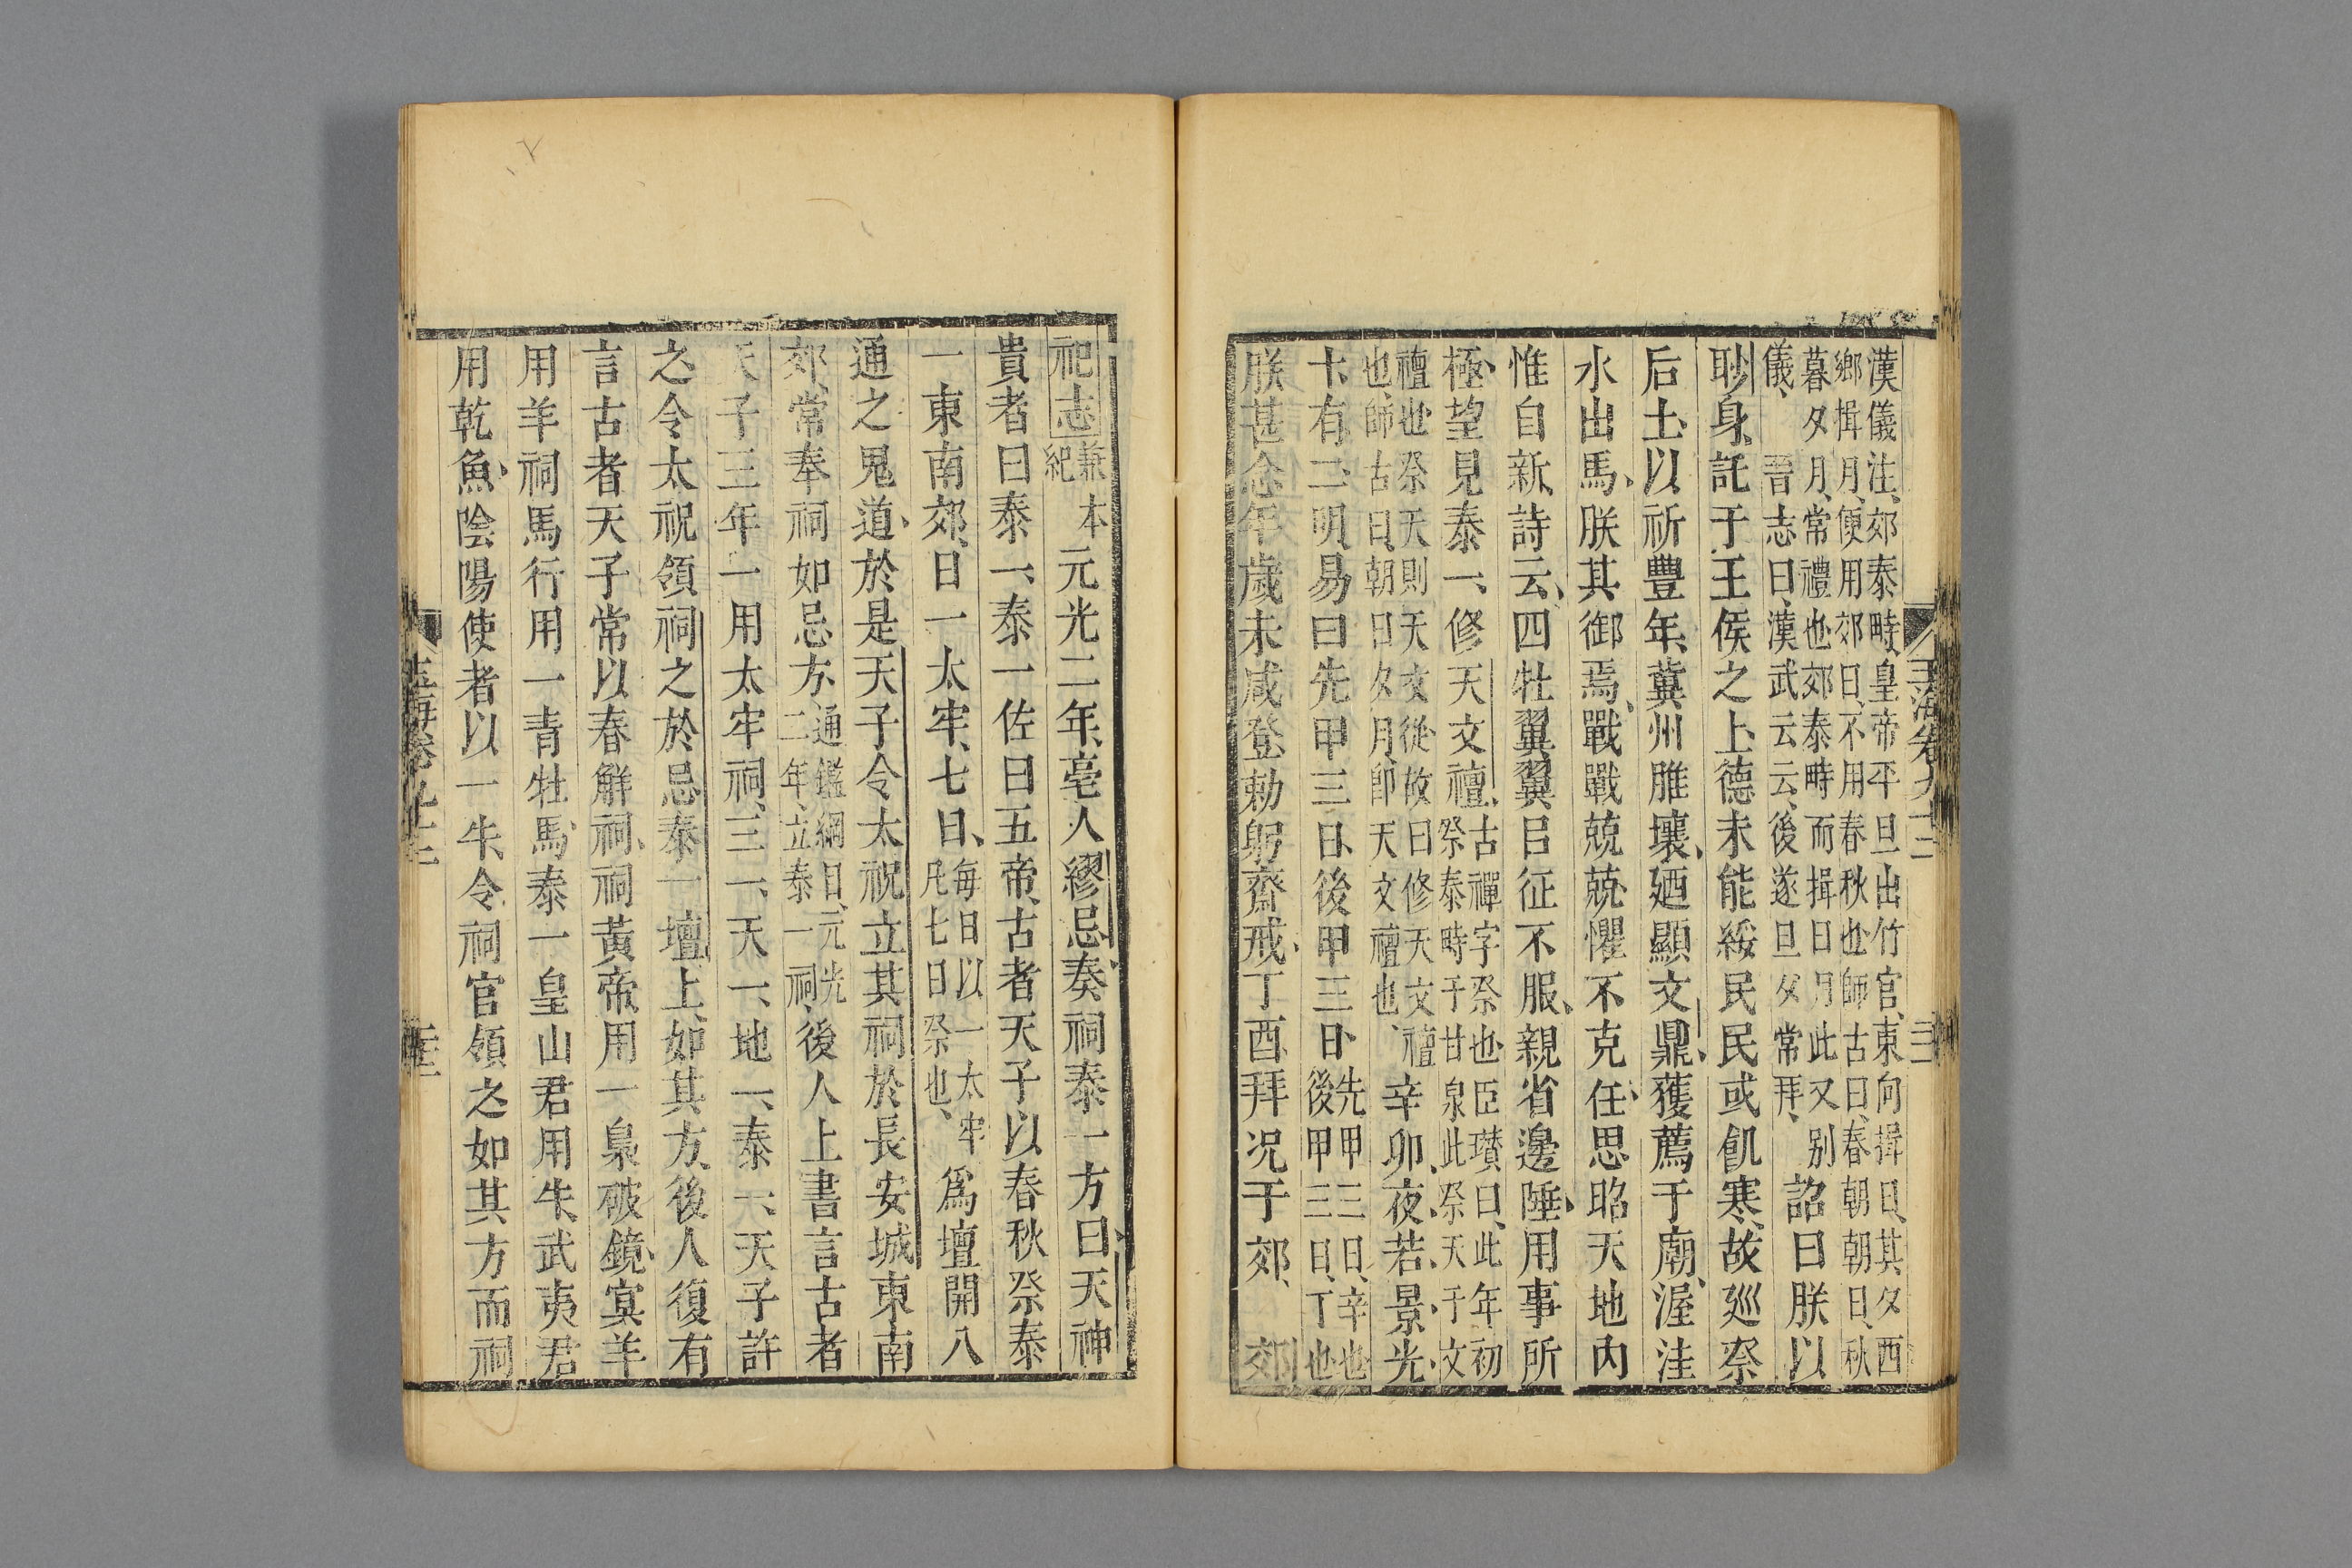 漢儀注、郊泰畤、皇帝平旦出竹官、東向揖日、其夕西
鄉揖月、便用郊日、不用春秋也、師古曰、春朝朝日、秋
暮夕月、常禮也、郊泰畤而揖日月、此又別
儀、晉志曰、漢武云云、後遂旦夕常拜、
詔曰朕以
眇身、託于王侯之上、德未能綏民、民或飢寒、故廵祭
后土、以祈豐年、冀州脽壤、廼顯文鼎、獲薦于廟、渥洼
水出馬、朕其御焉、戰戰兢兢、懼不克任、思昭天地、內
惟自新、詩云、四牡翼翼、㠯征不服、親省邊陲、用事所
極、望見泰一、修天文襢、
古禪字祭也、臣瓉曰、此年初
祭泰畤于甘泉、此祭天于文
襢也、祭天則天文從、故曰修天文襢
也、師古曰、朝日夕月、卽天文襢也、
辛卯夜、若景光、
十有二明、易曰先甲三日、後甲三日、
先甲三日、辛也
後甲三日、丁也
朕甚念年歲未咸登、勅躬齋戒、丁酉、拜况于郊、 郊
玉海卷九十二
祀志
兼本
紀
元光二年、亳人繆忌、奏祠泰一方曰、天神
貴者曰泰一、泰一佐曰五帝、古者天子以春秋祭泰
一東南郊、日一太牢、七日、
每日以一太牢
凡七日祭也、
爲壇開八
通之鬼道、於是天子令太祝立其祠於長安城東南
郊、常奉祠如忌方、
通鑑綱目、元光
二年、立泰一祠、
後人上書言古者
天子三年一用太牢祠、三一、天一、地一、泰一、天子許
之、令太祝領祠之於忌泰一壇上、如其方、後人復有
言古者天子常以春解祠、祠黃帝、用一梟破鏡、㝠羊
用羊祠、馬行用一青牡馬、泰一、皇山君用牛、武夷君
用乾魚、陰陽使者以一牛、令祠官領之如其方、而祠
玉海卷九十二